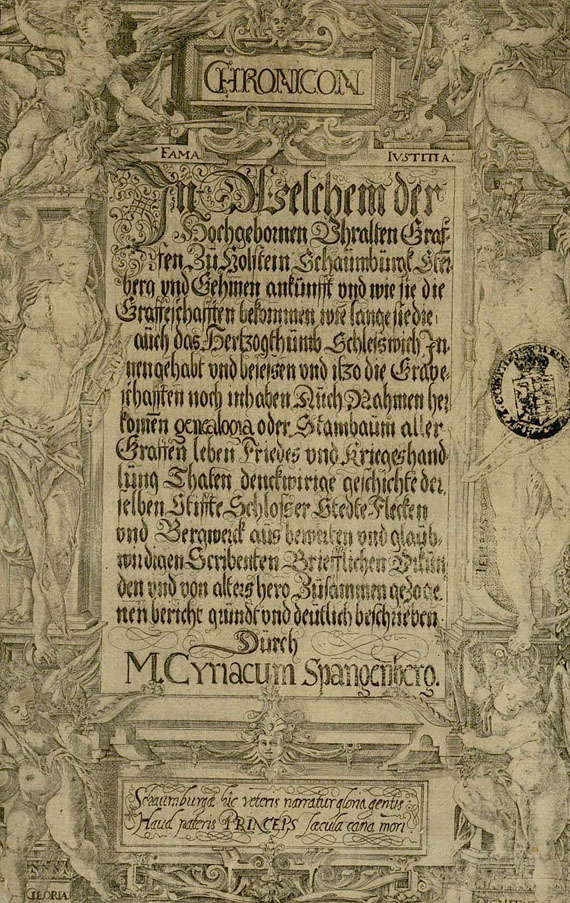 CHRONICON
FAMA IVSTITIA:
In Welchem der
Hochgebornen Vhralten Graf-
fen Zu Holstein Schaumburgk Ster-
berg vnd Gehmen ankunfft vnd wie sie die
Graffeschafften bekommen wie lange sie die
auch das Hertzogthumb Schleiswich In-
nengehabt vnd besessen vnd itzo die Grave-
schafften noch inhaben Auch Nahmen her
komen genealogia oder Stambaum aller
Graffen leben Friedes vnd Krieges hand
lung Thaten denckwirige geschichte der
selben Stiffte Schlosser Stedte Flecken
vnd Bergwerck aus bewerten vnd glaub-
wirdigen Scribenten Briefflichen Vrkun
den vnd von alters hero Zusammen gezoge
nen bericht grundt vnd deutlich beschrieben
Durch
M. Cyriacum Spangenberg.
Schaumburgæ hic veteris narratur gloria gentis
Haud pateris PRINCEPS sæcula cana mori
GLORIA